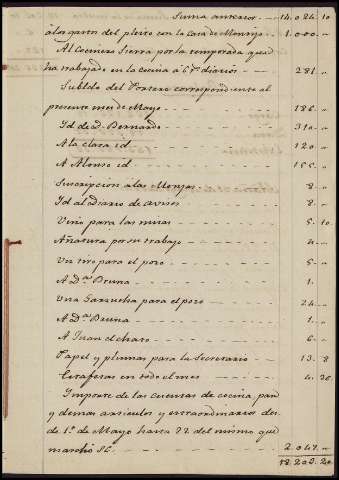 Suma anterior 14.024.10
a los gastos del pleito con la Casa de Montijo 1.000.
Al Cocinero Sierra por la temporada que
ha trabajado en la cocina a 6 rs diarios 281.
Sueldo del Portero correspondiente al
presente mes de Mayo 186.
Id de D. Bernardo 310.
A la clara id 120
A Alonso id 155.
Suscripcion a las Monjas 8.
Id al Diario de avisos 8.
Vino para las misas 5.10
por su trabajo 4.
para el pozo 5.
A Da. Bruna 1.
Una Garrucha para el pozo 24.
A Da. Bruna 1.
A Juan el charo 6.
Papel y plumas para la Secretario 13.8
Estafetas en todo el mes 4.26
Importe de las cuentas de cocina, pan
y demas articulos y extraordinarios des
de 1o. de Mayo hasta 22 del mismo que
marchó S.E. 2.047.
18.205.20